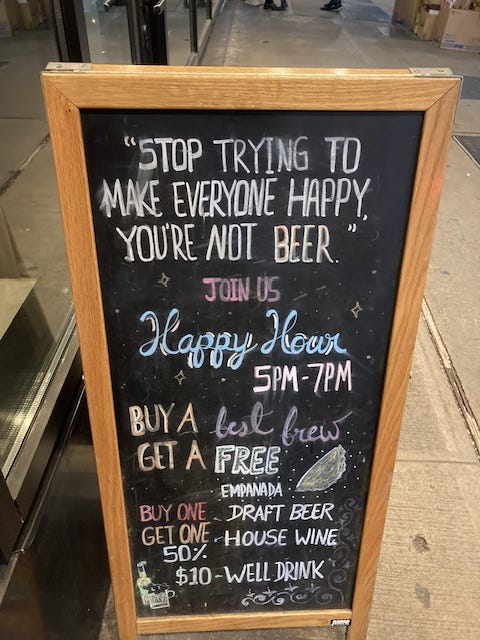 "STOP TRYING TO
MAKE EVERYONE HAPPY,
YOU'RE NOT BEER."
JOIN US
Happy Hour
5PM-7PM
BUY A best brew
GET A FREE
EMPANADA
BUY ONE - DRAFT BEER
GET ONE - HOUSE WINE
50%
$10-WELL DRINK